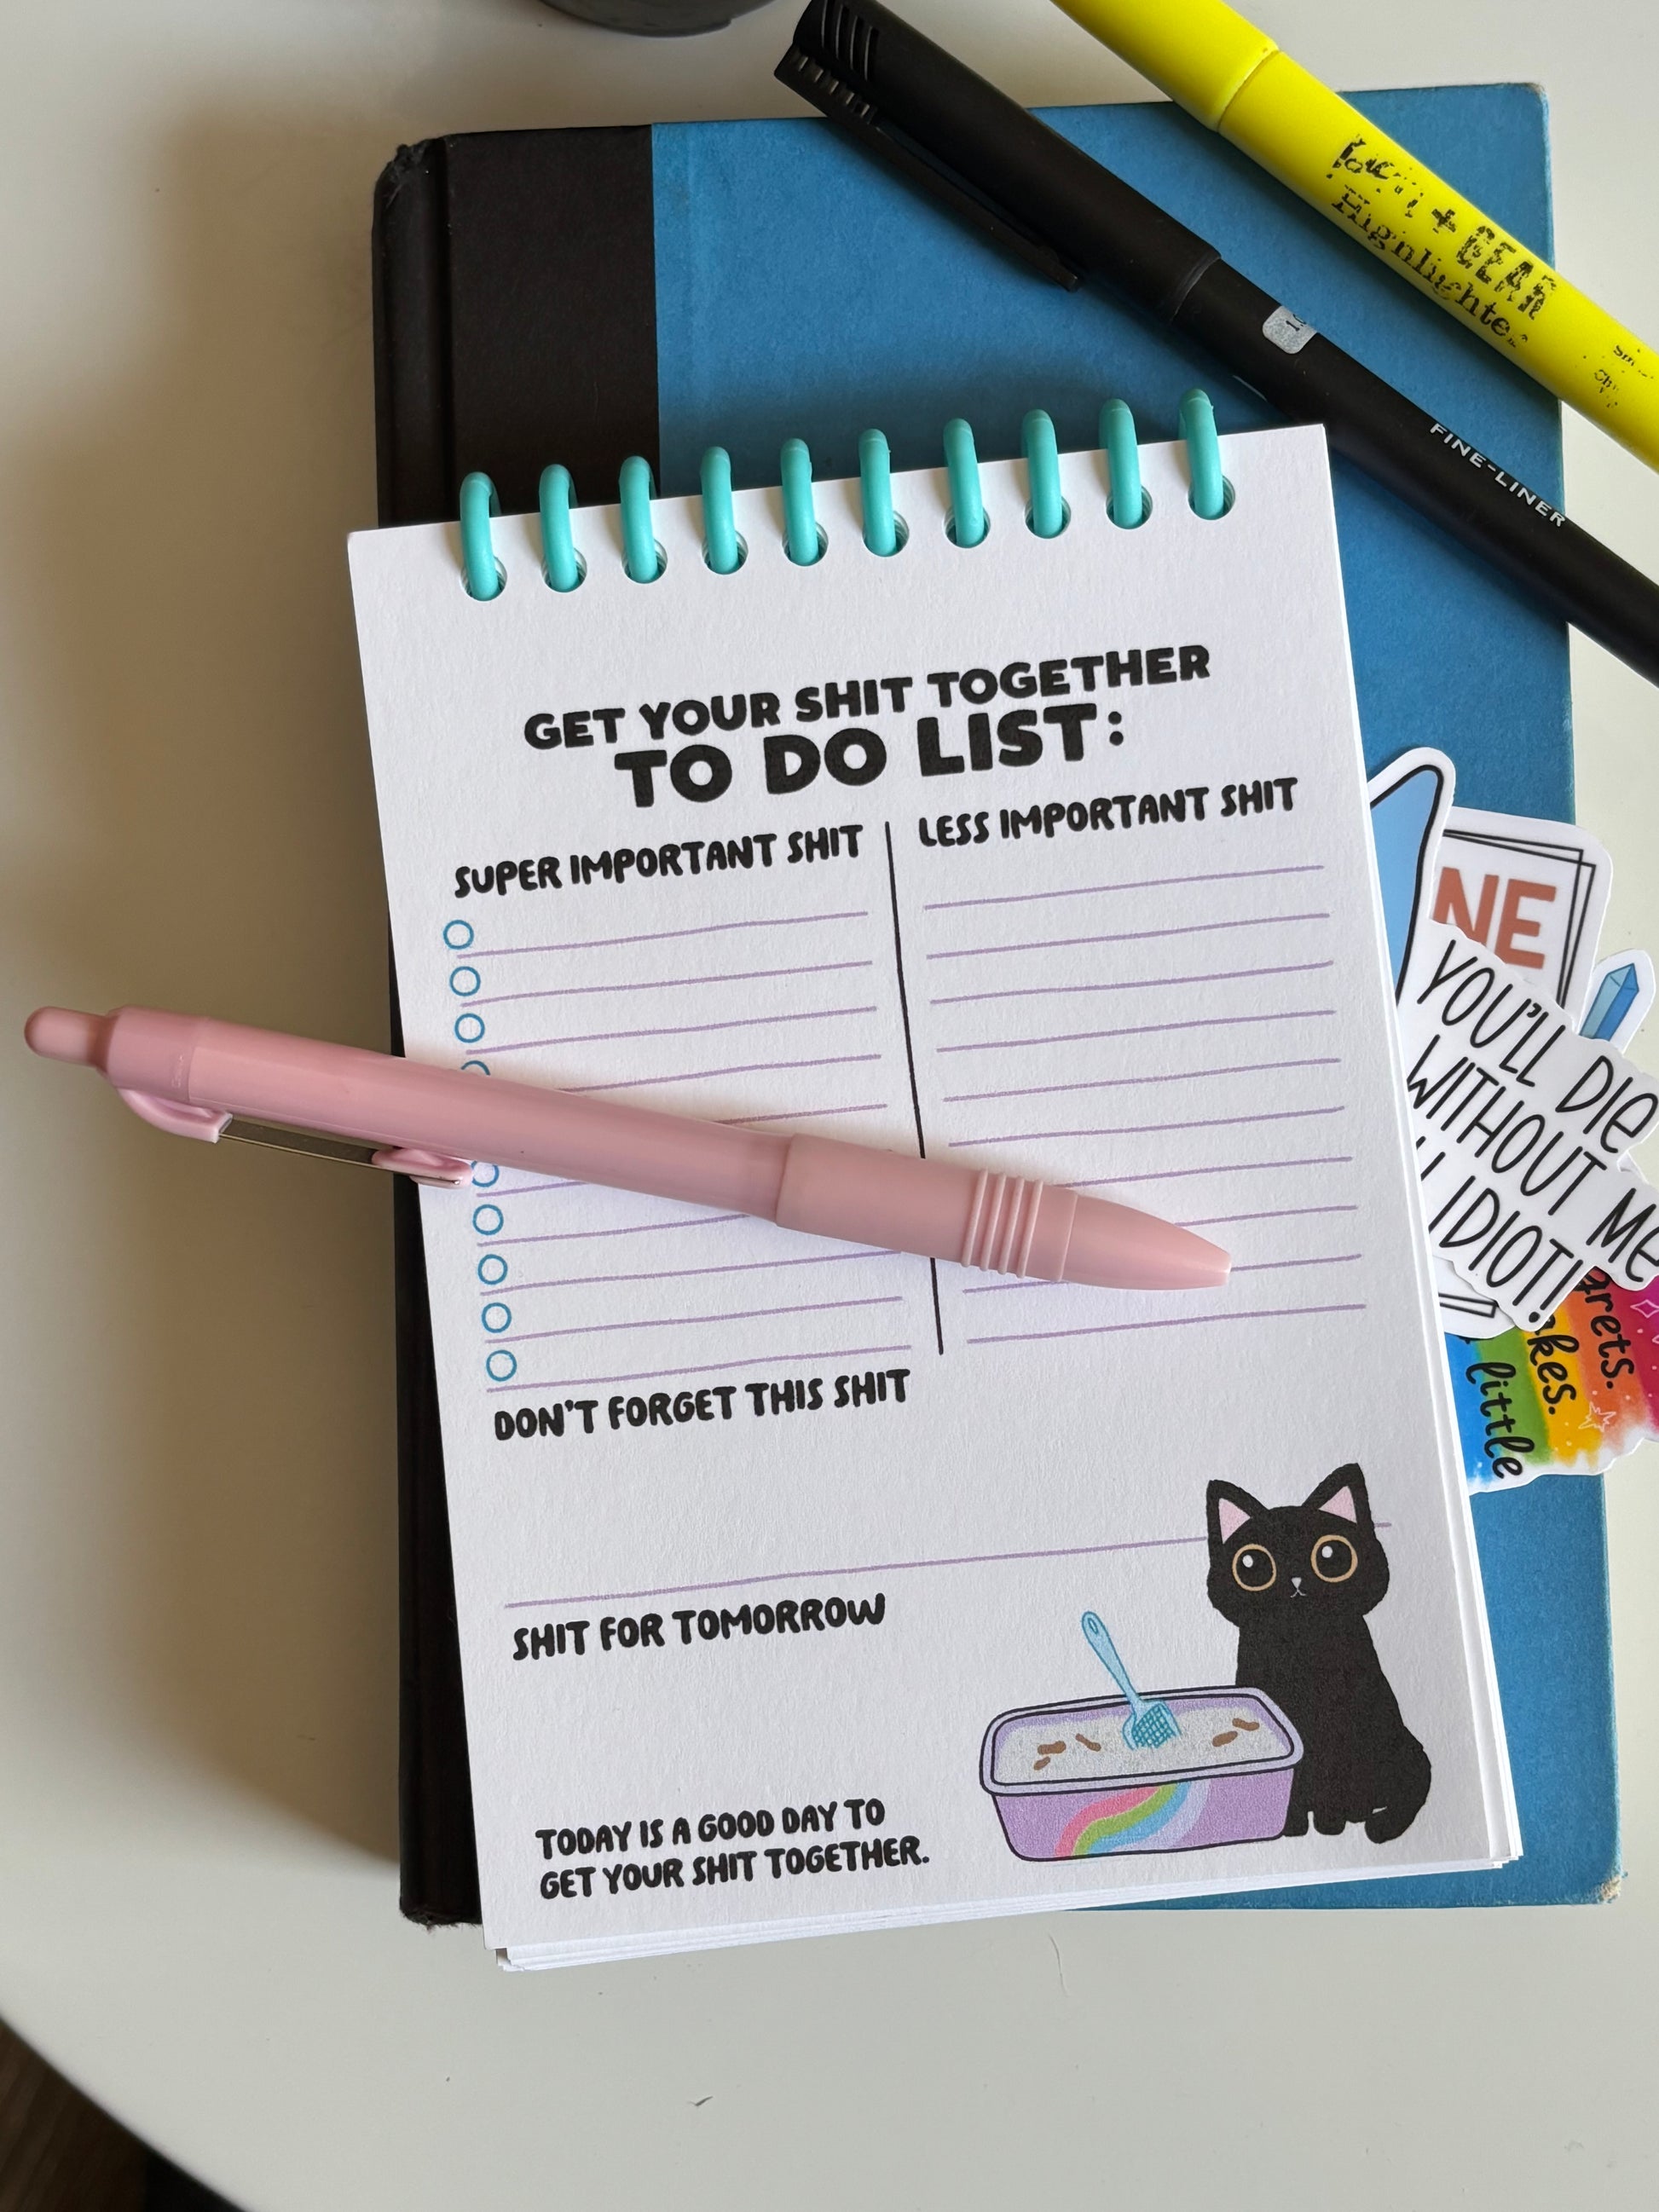 pen + GEAR
Highlighter
FINE-LINER
GET YOUR SHIT TOGETHER
TO DO LIST:
SUPER IMPORTANT SHIT
LESS IMPORTANT SHIT
DON'T FORGET THIS SHIT
SHIT FOR TOMORROW
TODAY IS A GOOD DAY TO
GET YOUR SHIT TOGETHER.
NE
YOU'LL DIE
WITHOUT ME
IDIOT!
little